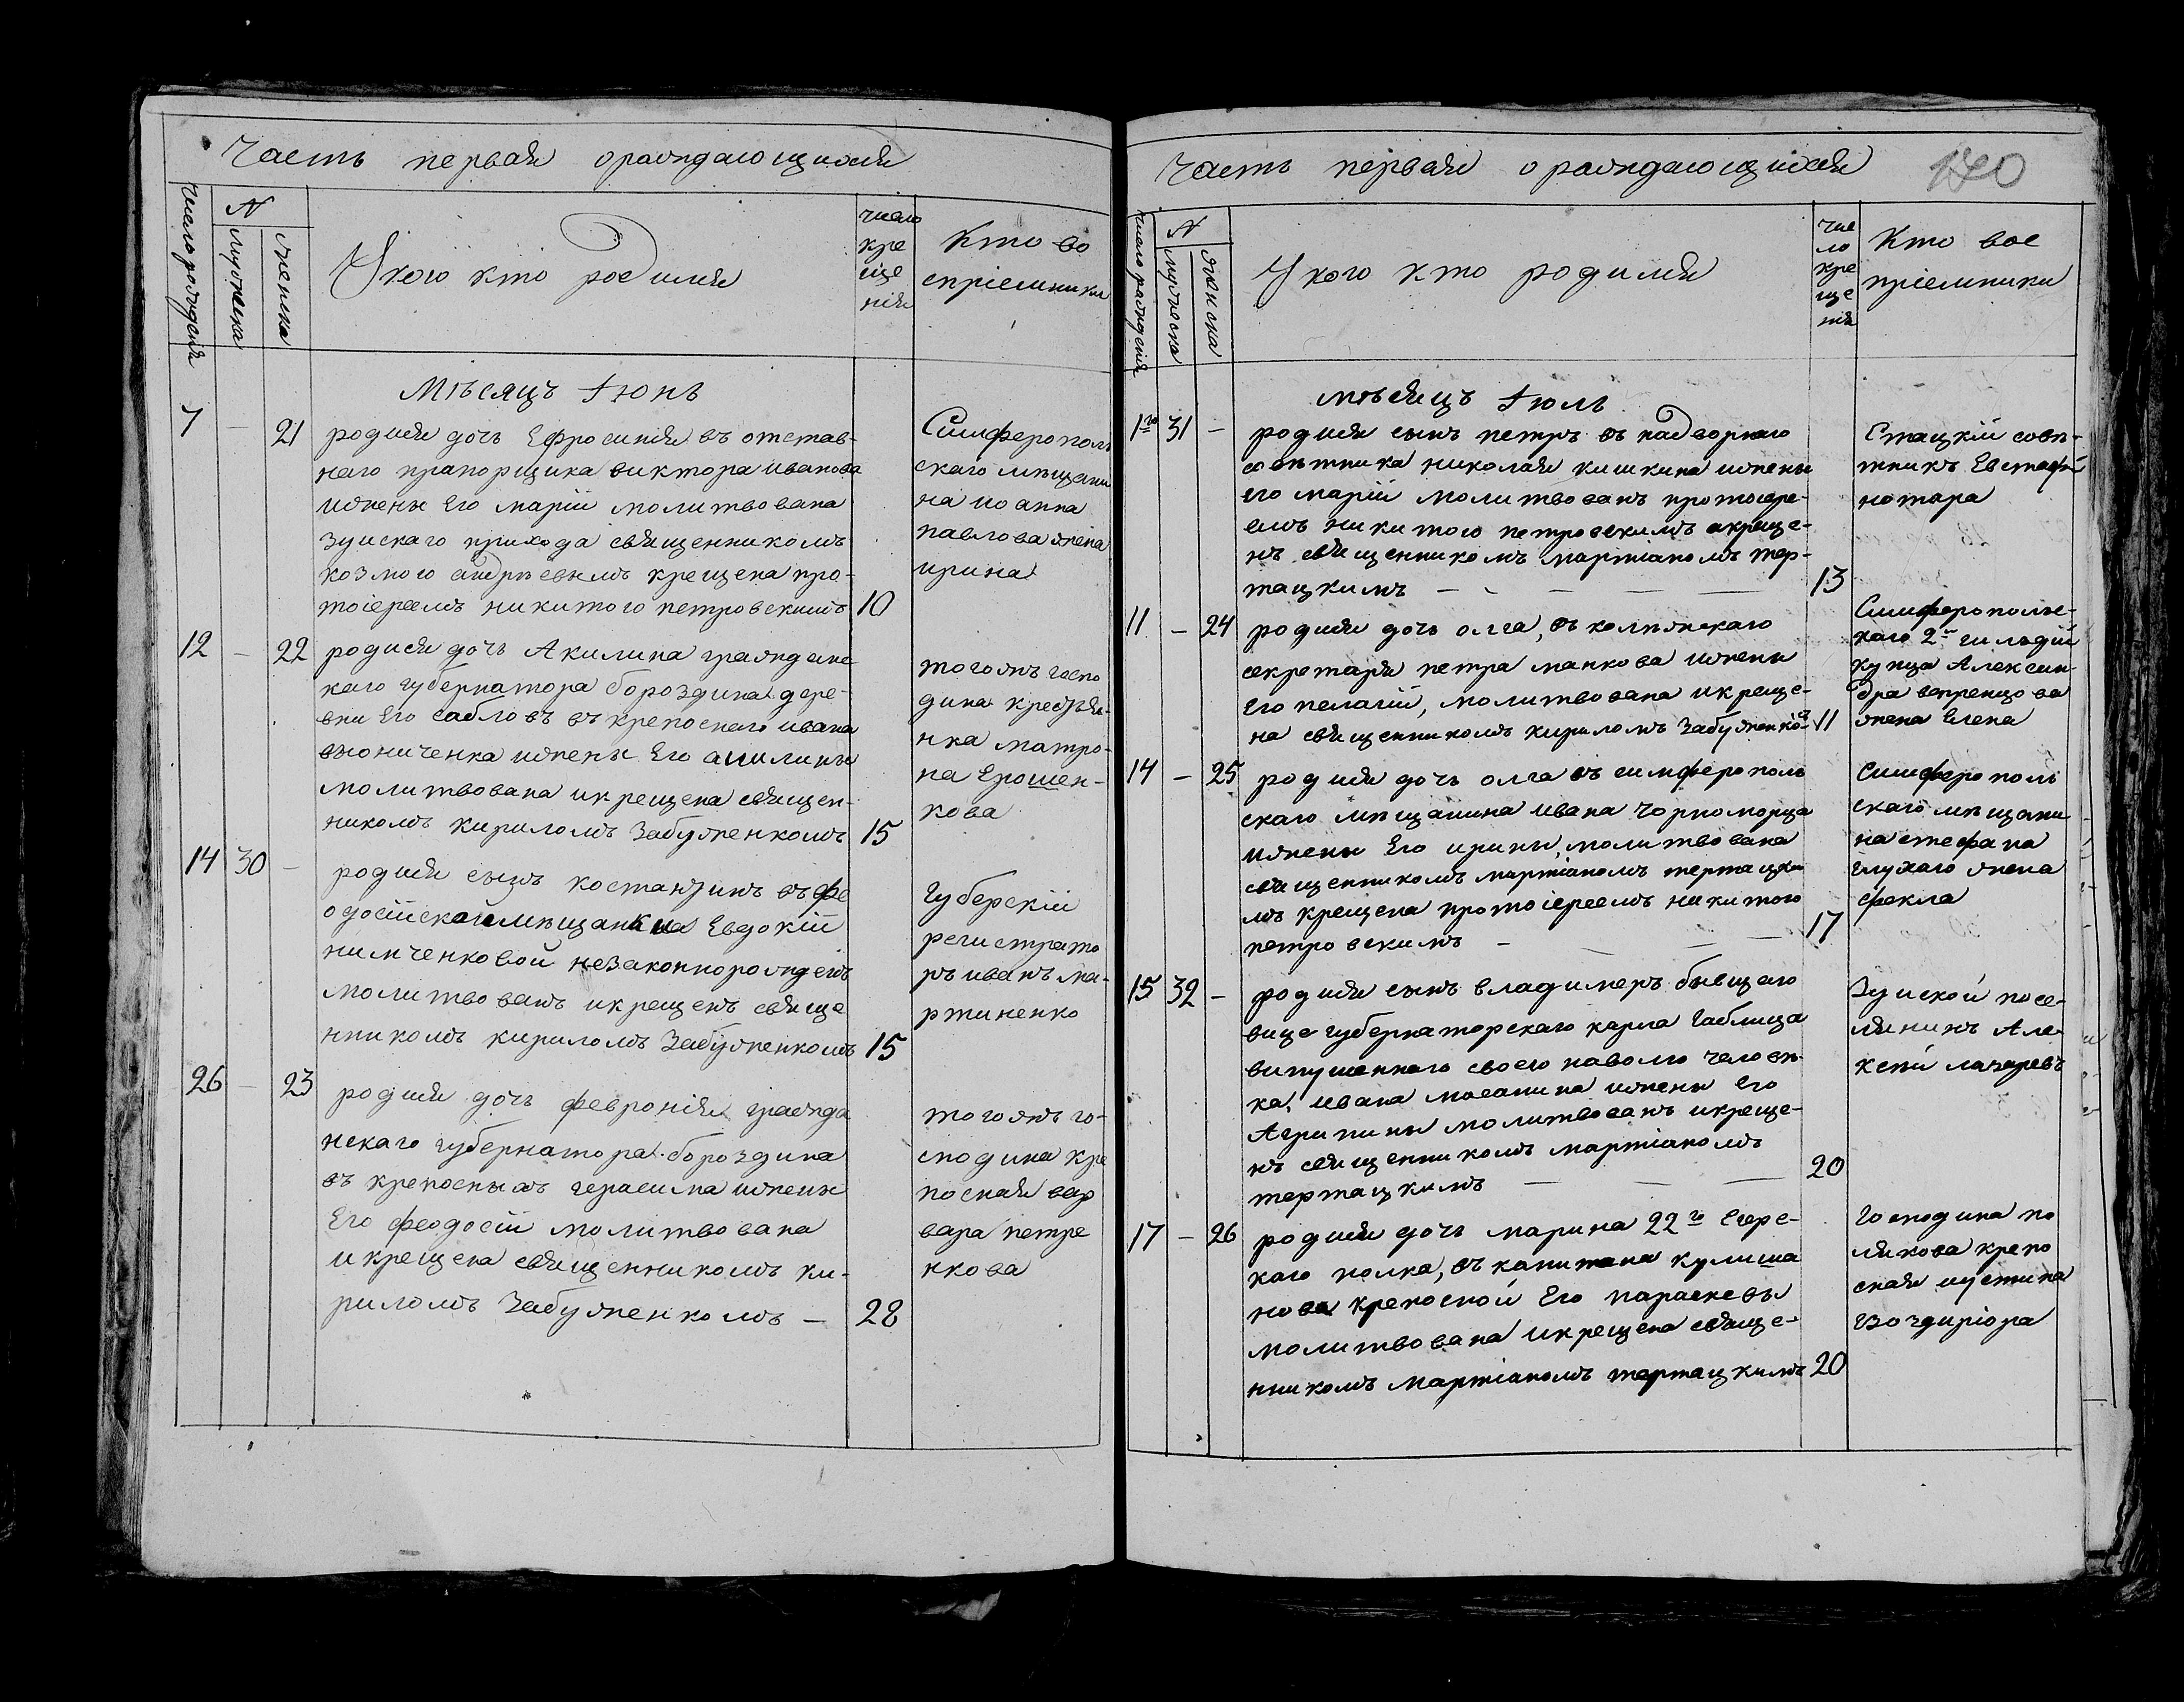 Часть первая о раждающихся
Число рождения
N
мужеска
женска
У кого кто родился
число
кре
ще
нія
Кто во
спріемники
Мѣсяцъ Іюнь
7 — 21 родися дочь Ефросинія въ отстав-
наго прапорщика виктора иванова
ижены Его маріи молитвована
зуискаго прихода священникомъ
козмою андрѣевымъ крещена про-
тоіереемъ никитою петровскимъ 10
Симферополь
скаго мѣщани
на иоанна
павлова жена
ирина
12 — 22 родися дочь Акилина гражданс
каго губернатора бороздина дере-
вни Его саблов въ крепоснаго ивана
ижены Его акилины
молитвована икрещена священ-
никомъ кириломъ Забуженкомъ 15
тогожъ госпо
дина крестья-
нка матро-
на Ерошен-
кова
14 30 — родися сынъ костантинъ въ фе
одосійской мѣщанки Евдокіи
нимченковой незаконнорожденъ
молитвованъ икрещенъ свяще
нникомъ кириломъ Забуженкомъ 15
Губерскіи
регистрато
ръ иванъ ма-
ртиненко
26 — 23 родися дочь февронія гражда
нскаго губернатора бороздина
въ крепосныхъ герасима ижены
Его феодосіи молитвована
и крещена священникомъ ки-
риломъ Забуженкомъ — 28
тогожъ го-
сподина кре
посная вар
вара петре
нкова
Часть первая о раждающихся
140
Число рождения
N
мужеска
женска
У кого кто родился
чис
ло
кре
ще
нія
Кто вос
пріемники
мѣсяцъ Іюль
1го 31 — родися сынъ петръ въ надворнаго
совѣтника николая кишкина ижены
его маріи молитвованъ протоіере-
емъ никитою петровскимъ акреще-
нъ священникомъ мартіаномъ тер-
тацкимъ — — — — 13
Стацкій совѣ-
тникъ Евстафі
нотара
11 — 24 родися дочь олга, въ колѣжскаго
секретаря петра манкова ижены
Его пелагіи, молитвована икреще-
на священникомъ кириломъ Забуженко- 11
Симферополс-
каго 2й гильдіи
купца Алексан-
дра вапренцова
жена Елена
14 — 25 родися дочь олга въ симферополь
скаго мѣщанина ивана Чорноморца
ижены Его ирины, молитвована
священникомъ мартіаномъ тертацки
мъ крещена протоіереемъ никитою
петровскимъ — — — 17
Симферополь
скаго мѣщани
на стефана
глухаго жена
фекла
15 32 — родися сынъ владимеръ бывшаго
вице губернаторскаго карла Габлица
випущеннаго своего наволю человѣ-
ка, ивана мосанина ижены Его
Агрипины молитвованъ икреще-
нъ священникомъ мартіаномъ
тертацкимъ — — — 20
Зуиской посе-
лянинъ Але-
ксѣй лазаревъ
17 — 26 родися дочь марина 22го Егерс-
каго полка, въ капитана кулиша
нова крепосной Его параскевы
молитвована икрещена свяще-
нникомъ мартіаномъ тертацкимъ 20
Господина по
лякова крепо
сная иустина